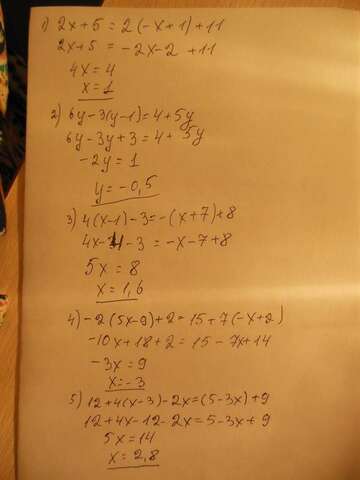 1) 2x+5=2(-x+1)+11
2x+5 = -2x-2 +11
4x=4
x=1
2) 6y-3(y-1)=4+5y
6y-3y+3=4+5y
-2y=1
y=-0,5
3) 4(x-1)-3=-(x+7)+8
4x-4-3=-x-7+8
5x=8
x=1,6
4) -2(5x-9)+2=15+7(-x+2)
-10x+18+2=15-7x+14
-3x=9
x=-3
5) 12+4(x-3)-2x=(5-3x)+9
12+4x-12-2x=5-3x+9
5x=14
x=2,8